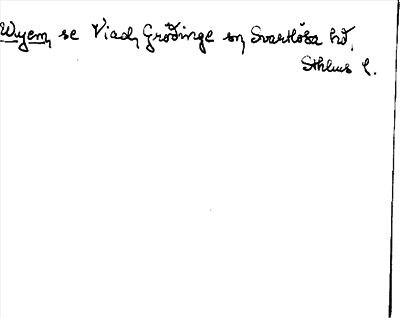 Wyem, se Viad, Grödinge sn, Svartlösa hd,
Sthlms l.